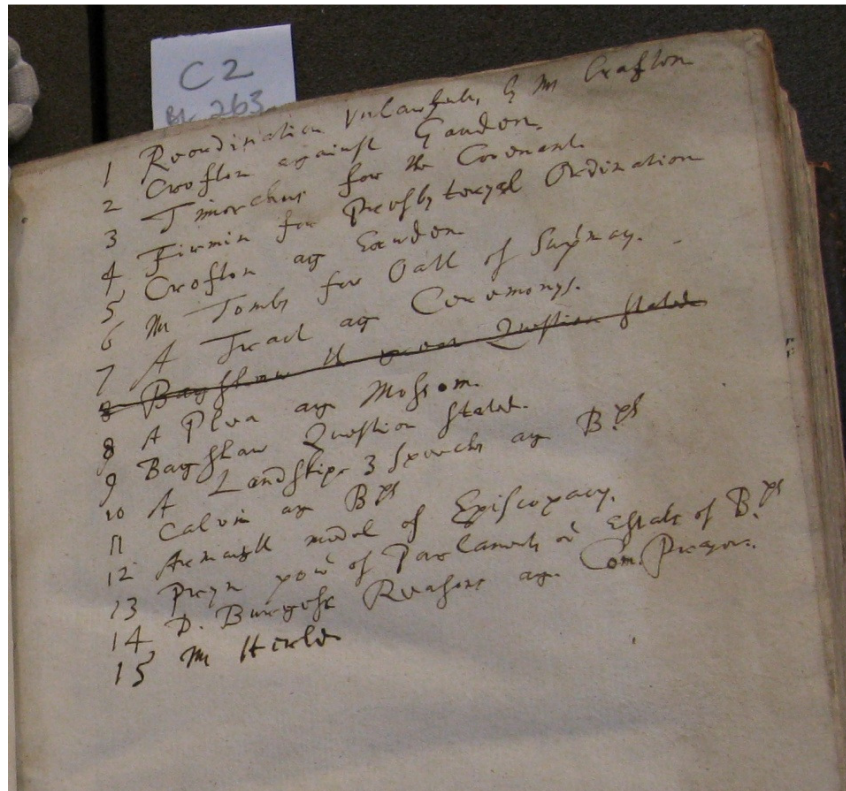 C2
263
1 Reordination Unlawfull, by Mr Crofton
2 Crofton against Gauden.
3 Timorchus for the Covenant.
4 Firmin for Presbyteryal Ordination
5 Crofton ag Gauden.
6 Mr Tombs for Oath of Supmacy.
7 A Treat ag Ceremonys.
8 Bagshaw Question stated
8 A Plea ag Mossom.
9 Bagshaw Question stated.
10 A Landskipe 3 Speeches ag Bps
11 Calvin ag Bps
12 Armagh model of Episcopacy.
13 Pryn powr of Parlament ov Estate of Bps
14 D. Burgess Reasons ag. Com. Prayer.
15 Mr Herle